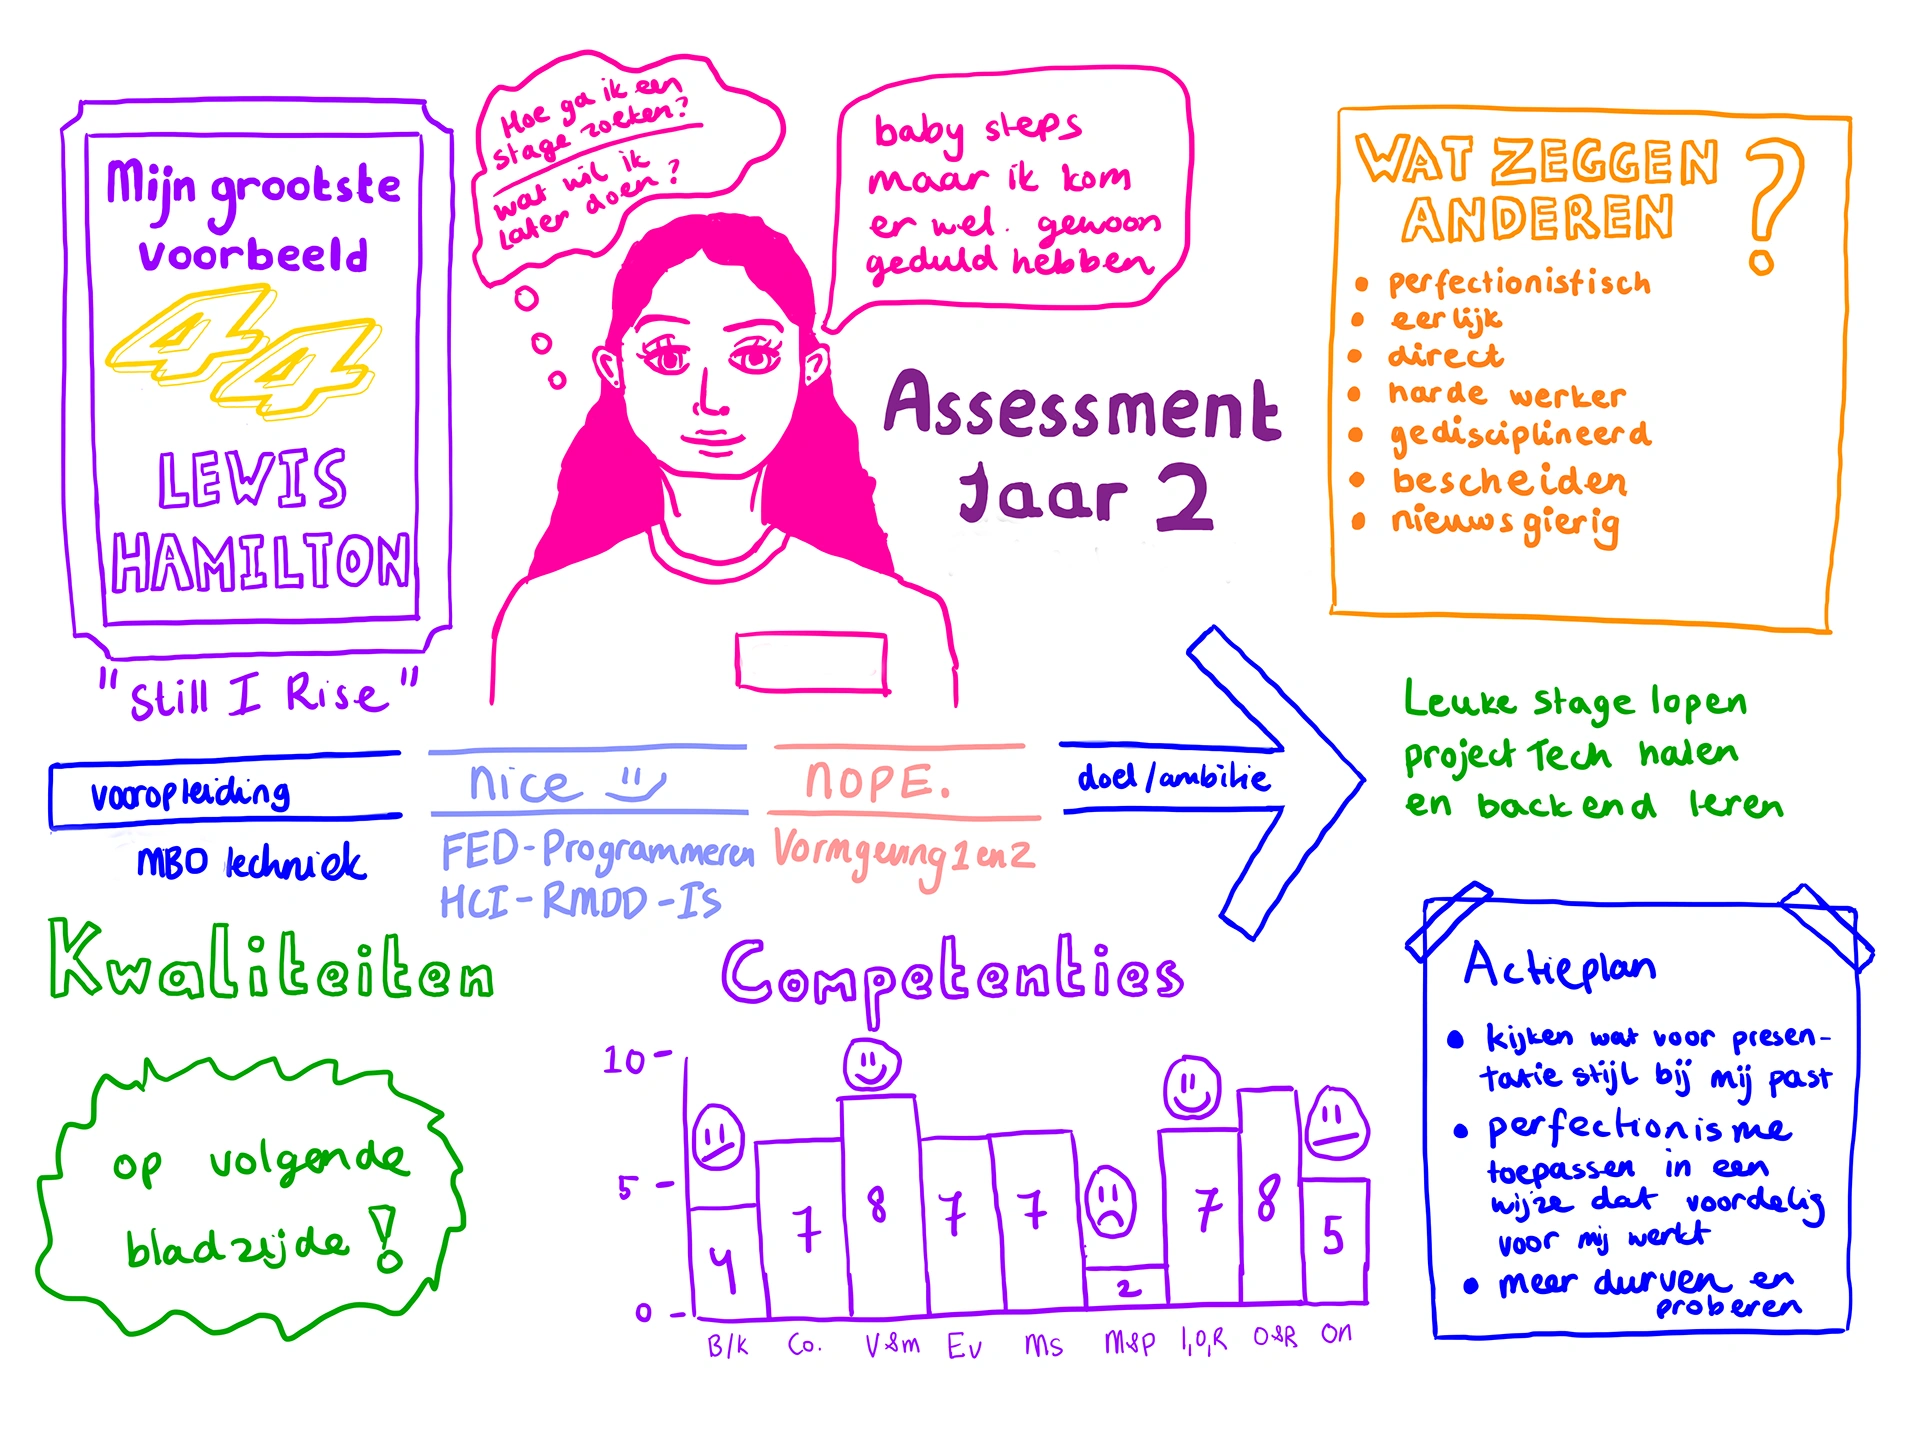 Mijn grootste
voorbeeld
44
LEWIS
HAMILTON
"Still I Rise"
Hoe ga ik een
stage zoeken?
wat wil ik
later doen?
baby steps
maar ik kom
er wel. gewoon
geduld hebben
Assessment
Jaar 2
WAT ZEGGEN
ANDEREN ?
• perfectionistisch
• eerlijk
• direct
• harde werker
• gedisciplineerd
• bescheiden
• nieuwsgierig
vooropleiding
MBO techniek
nice
FED-Programmeren
HCI-RMDD-IS
NOPE.
Vormgeving 1 en 2
doel/ambitie
Leuke stage lopen
project Tech halen
en backend leren
Kwaliteiten
op volgende
bladzijde!
Competenties
10
5
0
4
7
8
7
7
2
7
8
5
B/K
Co.
V&m
Ev
Ms
M&P
I,O,R
O&R
On
Actieplan
• kijken wat voor presen-
tatie stijl bij mij past
• perfectionisme
toepassen in een
wijze dat voordelig
voor mij werkt
• meer durven en
proberen